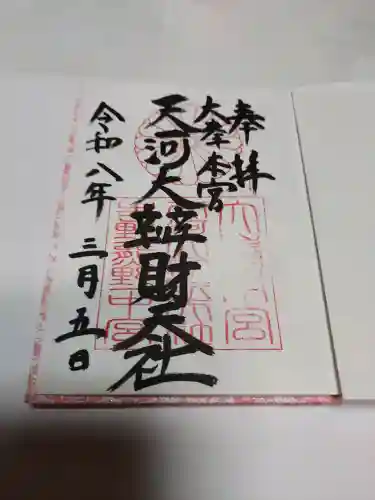 奉拝
大峯本宮
天河大辨財天社
令和八年 三月五日